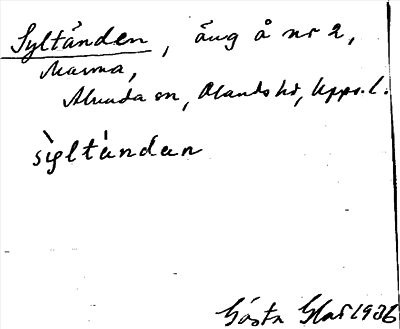 Syltånden, äng å nr 2,
Marma,
Almunda sn, Olands hd, Upps. l.
sỳltàndan
Gösta 1936